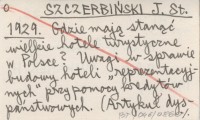 SZCZERBIŃSKI J. St.
1929. Gdzie mają stanąć
wielkie hotele turystyczne
w Polsce? Uwagi w sprawie
budowy hoteli "reprezentacyj-
nych" przy pomocy kredytów
państwowych. (Artykuł dys-